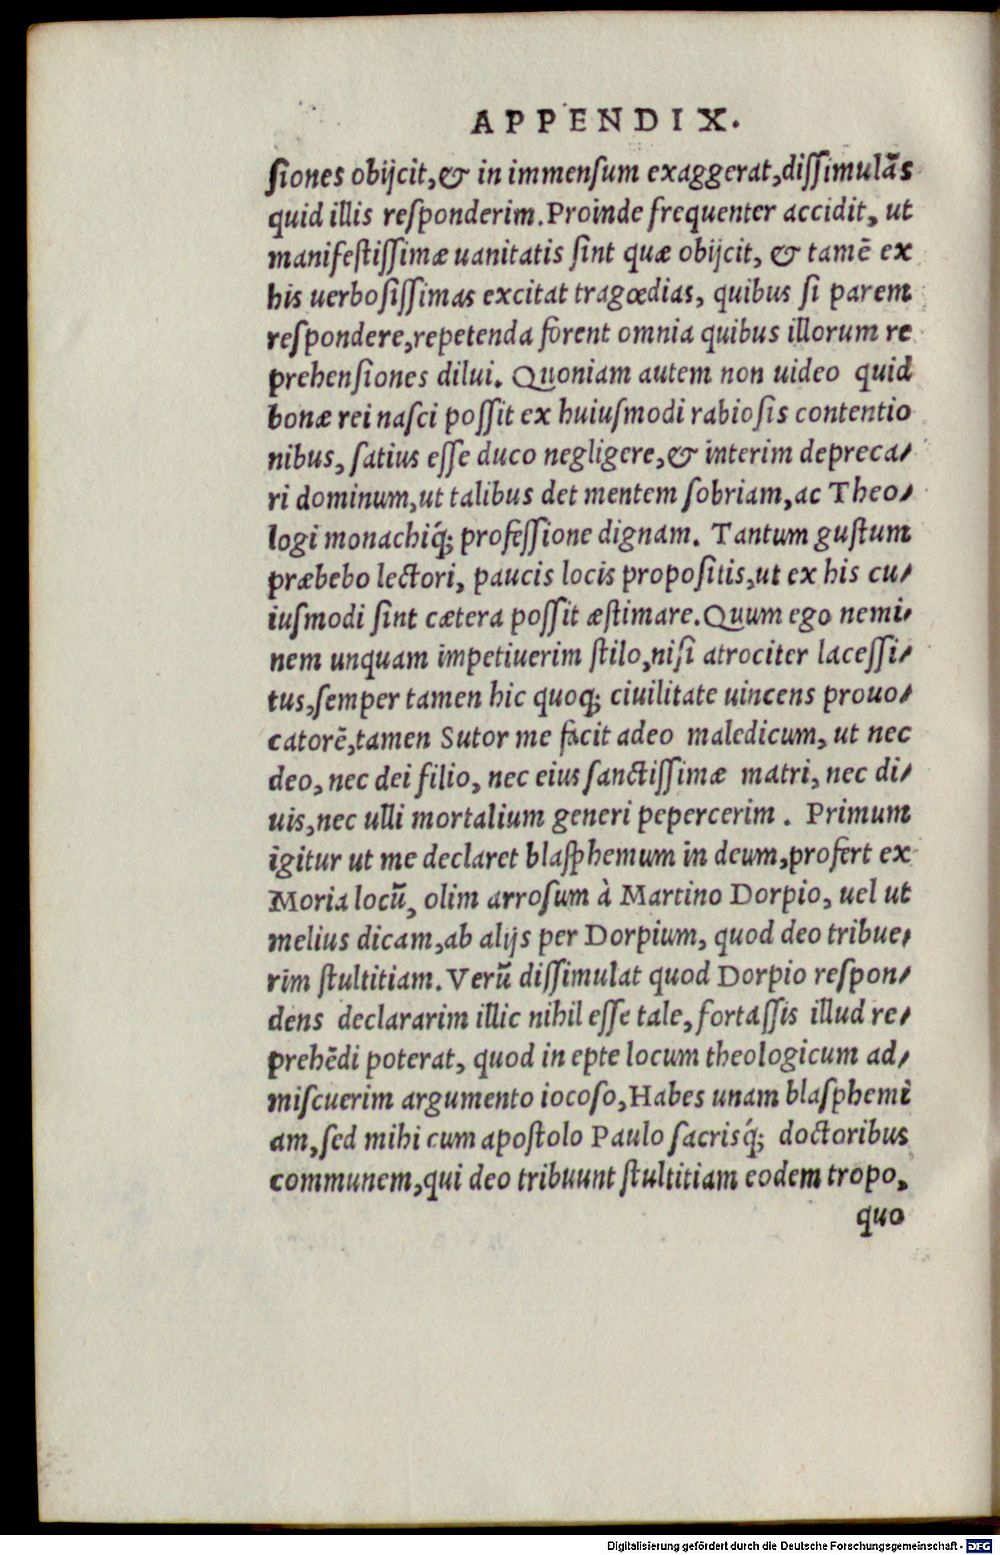 APPENDIX.
ſiones obijcit,& in immenſum exaggerat,diſſimulãs
quid illis reſponderim. Proinde frequenter accidit, ut
manifeſtiſſimæ uanitatis ſint quæ obijcit, & tamẽ ex
his uerboſiſſimas excitat tragœdias, quibus ſi parem
reſpondere,repetenda forent omnia quibus illorum re
prehenſiones dilui. Quoniam autem non uideo quid
bonæ rei naſci poſſit ex huiuſmodi rabioſis contentio
nibus, ſatius eſſe duco negligere,& interim depreca⸗
ri dominum,ut talibus det mentem ſobriam,ac Theo⸗
logi monachiq́; profeſſione dignam. Tantum guſtum
præbebo lectori, paucis locis propoſitis,ut ex his cu⸗
iuſmodi ſint cætera poſſit æſtimare. Quum ego nemi⸗
nem unquam impetiuerim ſtilo,niſi atrociter laceſſi⸗
tus,ſemper tamen hic quoq; ciuilitate uincens prouo⸗
catorẽ,tamen Sutor me facit adeo maledicum, ut nec
deo, nec dei filio, nec eius ſanctiſſimæ matri, nec di⸗
uis,nec ulli mortalium generi pepercerim. Primum
igitur ut me declaret blaſphemum in deum,profert ex
Moria locũ, olim arroſum à Martino Dorpio, uel ut
melius dicam,ab alijs per Dorpium, quod deo tribue⸗
rim ſtultitiam. Verũ diſſimulat quod Dorpio reſpon⸗
dens declararim illic nihil eſſe tale, fortaſſis illud re⸗
prehẽdi poterat, quod in epte locum theologicum ad⸗
miſcuerim argumento iocoſo,Habes unam blaſphemi
am,ſed mihi cum apoſtolo Paulo ſacrisq́; doctoribus
communem,qui deo tribuunt ſtultitiam eodem tropo,
quo
Digitalisierung gefördert durch die Deutsche Forschungsgemeinschaft - DFG